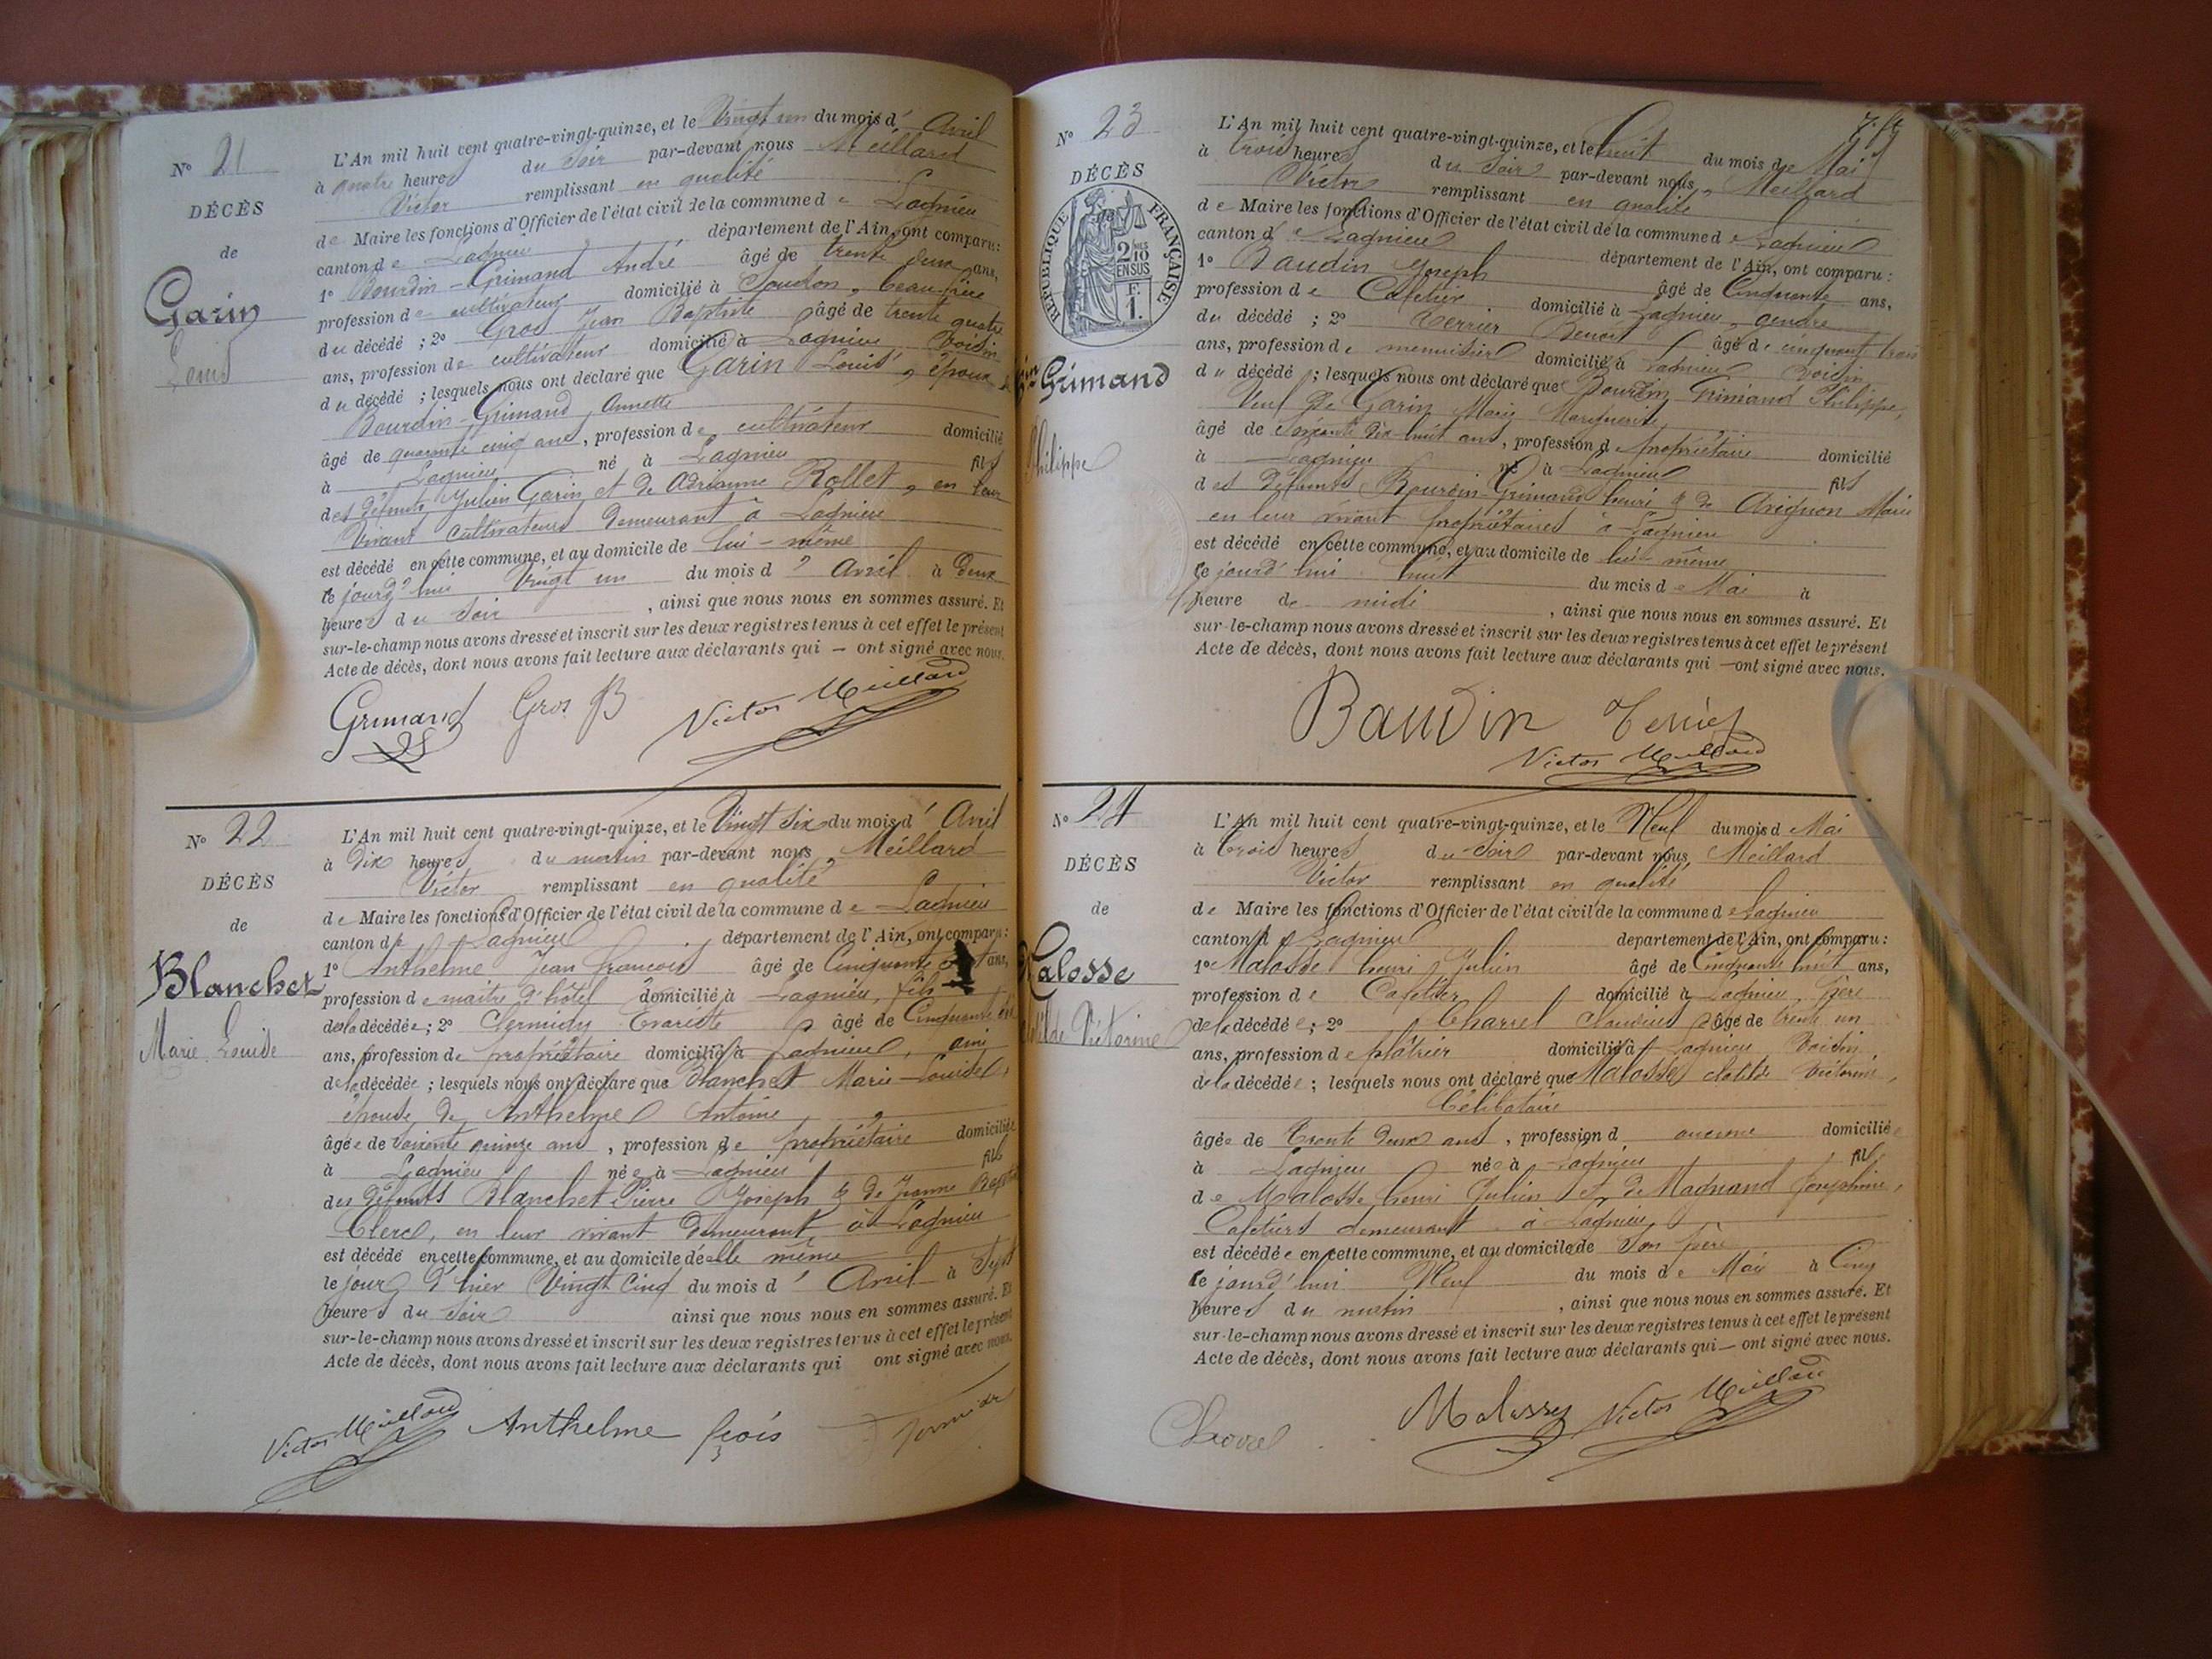 N° 21
DÉCÈS
de
Garin
Louis
L'An mil huit cent quatre-vingt-quinze, et le Vingt un du mois d' Avril
à quatre heures du Soir par-devant nous Meillard
Victor remplissant en qualité
de Maire les fonctions d'Officier de l'état civil de la commune de Lagnieu
canton de Lagnieu département de l'Ain, ont comparu:
1° Bourdin-Grimand André âgé de trente deux ans,
profession de cultivateur domicilié à Soudon, beau-frère
du décédé ; 2° Gros Jean Baptiste âgé de trente quatre
ans, profession de cultivateur domicilié à Lagnieu Voisin
du décédé ; lesquels nous ont déclaré que Garin Louis, époux de
Bourdin-Grimand Annette
âgé de quarante cinq ans, profession de cultivateur domicilié
à Lagnieu né à Lagnieu fils
des défunts Julien Garin et de Adrianne Rollet, en leur
Vivant cultivateurs demeurant à Lagnieu
est décédé en cette commune, et au domicile de lui-même
le jourd'hui Vingt un du mois d' Avril à deux
heures du Soir , ainsi que nous nous en sommes assuré. Et
sur-le-champ nous avons dressé et inscrit sur les deux registres tenus à cet effet le présent
Acte de décès, dont nous avons fait lecture aux déclarants qui — ont signé avec nous.
Grimand Gros B Victor Meillard
N° 22
DÉCÈS
de
Blanchet
Marie Louise
L'An mil huit cent quatre-vingt-quinze, et le Vingt Six du mois d' Avril
à Dix heures du matin par-devant nous Meillard
Victor remplissant en qualité
de Maire les fonctions d'Officier de l'état civil de la commune de Lagnieu
canton de Lagnieu département de l'Ain, ont comparu:
1° Anthelme Jean François âgé de Cinquante ans,
profession de maître d'hôtel domicilié à Lagnieu, fils
de la décédée ; 2° Clermidy Evariste âgé de Cinquante
ans, profession de propriétaire domicilié à Lagnieu, ami
de la décédée ; lesquels nous ont déclaré que Blanchet Marie-Louise,
épouse de Anthelme Antoine,
âgée de soixante quinze ans, profession de propriétaire domiciliée
à Lagnieu née à Lagnieu fille
des défunts Blanchet Pierre Joseph & de Jeanne
Clerc, en leur vivant demeurant à Lagnieu
est décédé en cette commune, et au domicile de elle même
le jour d'hier Vingt Cinq du mois d' Avril à Sept
heures du Soir ainsi que nous nous en sommes assuré. Et
sur-le-champ nous avons dressé et inscrit sur les deux registres tenus à cet effet le présent
Acte de décès, dont nous avons fait lecture aux déclarants qui ont signé avec nous.
Victor Meillard Anthelme fçois
N° 23
DÉCÈS
RÉPUBLIQUE FRANÇAISE
2/10 EN SUS
F. 1.
Grimand
Philippe
L'An mil huit cent quatre-vingt-quinze, et le huit du mois de Mai
à trois heures du Soir par-devant nous, Meillard
Victor remplissant en qualité
de Maire les fonctions d'Officier de l'état civil de la commune de Lagnieu
canton de Lagnieu département de l'Ain, ont comparu:
1° Baudin Joseph âgé de Cinquante ans,
profession de Cafetier domicilié à Lagnieu, gendre
du décédé ; 2° Terrier Benoit âgé de cinquante trois
ans, profession de menuisier domicilié à Lagnieu Voisin
du décédé ; lesquels nous ont déclaré que Bourdin-Grimand Philippe,
Veuf de Garin Marie Marguerite,
âgé de soixante dix-huit ans, profession de propriétaire domicilié
à Lagnieu né à Lagnieu fils
des défunts Bourdin-Grimand henri & de Avignon Marie
en leur vivant propriétaires à Lagnieu
est décédé en cette commune, et au domicile de lui-même
le jourd'hui huit du mois de Mai à
heure de midi , ainsi que nous nous en sommes assuré. Et
sur-le-champ nous avons dressé et inscrit sur les deux registres tenus à cet effet le présent
Acte de décès, dont nous avons fait lecture aux déclarants qui — ont signé avec nous.
Baudin Terrier
Victor Meillard
N° 24
DÉCÈS
de
Malosse
Clotilde Victorine
L'An mil huit cent quatre-vingt-quinze, et le Neuf du mois d Mai
à trois heures du Soir par-devant nous, Meillard
Victor remplissant en qualité
de Maire les fonctions d'Officier de l'état civil de la commune de Lagnieu
canton de Lagnieu département de l'Ain, ont comparu:
1° Malosse henri Julien âgé de Cinquante huit ans,
profession de Cafetier domicilié à Lagnieu, père
de la décédée ; 2° Charrel Claudius âgé de trente un
ans, profession de plâtrier domicilié à Lagnieu Voisin
de la décédée ; lesquels nous ont déclaré que Malosse clotilde Victorine,
Célibataire
âgée de Trente deux ans, profession d aucune domiciliée
à Lagnieu née à Lagnieu fille
de Malosse henri Julien et de Magnand Joséphine,
Cafetiers demeurant à Lagnieu
est décédée en cette commune, et au domicile de Son père
le jourd'hui Neuf du mois de Mai à Cinq
heures du matin , ainsi que nous nous en sommes assuré. Et
sur-le-champ nous avons dressé et inscrit sur les deux registres tenus à cet effet le présent
Acte de décès, dont nous avons fait lecture aux déclarants qui — ont signé avec nous.
Charrel Malosse Victor Meillard